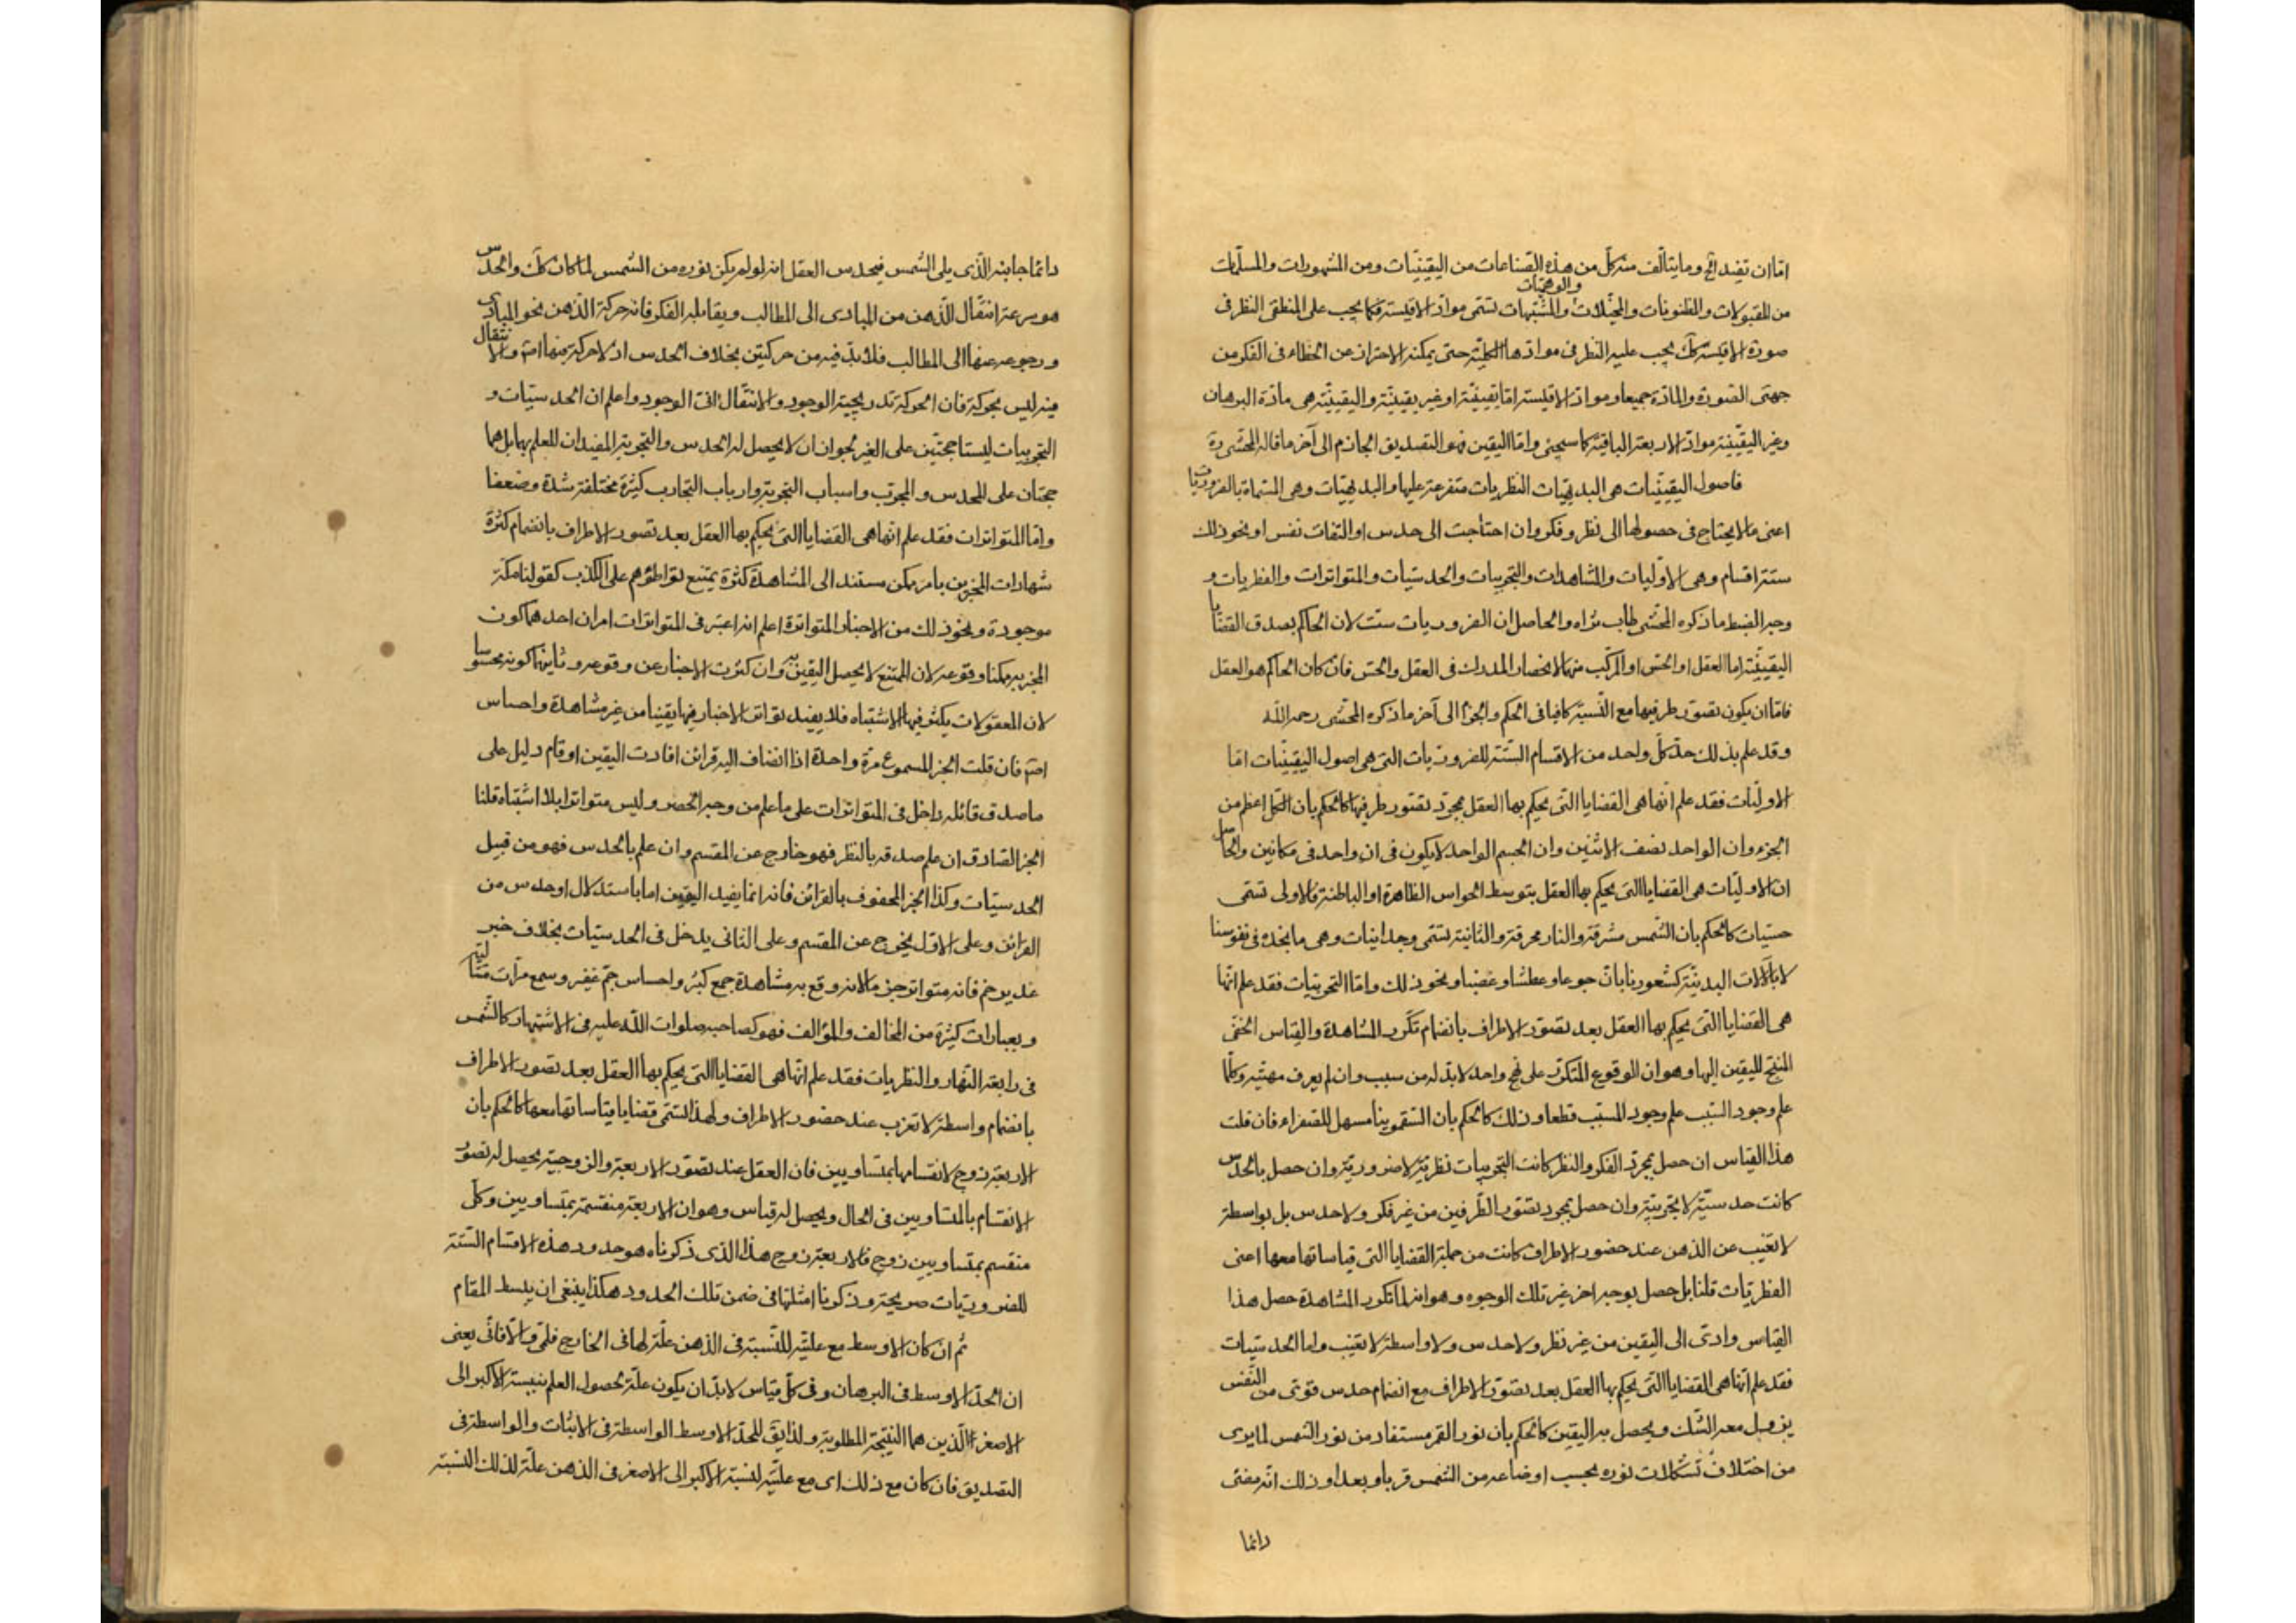 اما ان تفيد الخ وما يتألف منه كل من هذه الصناعات من اليقينيات ومن المشهورات والمسلمات
والوهميات
من المقبولات والمظنونات والمخيلات والمشبهات تسمى مواد الاقيسة فكما يجب على المنطقى النظر فى
صورة الاقيسة كك يجب عليه النظر فى موادها الكلية حتى يمكنه الاحتراز عن الخطاء فى الفكر من
جهتى الصورة والمادة جميعا ومواد الاقيسة اما يقينية او غير يقينية واليقينية هى مادة البرهان
وغير اليقينية مواد الاربعة الباقية كما سيجئ واما اليقين فهو التصديق الجازم الى آخر ما قاله المحشى ره
فاصول اليقينيات هى البديهيات النظريات متفرعة عليها والبديهيات وهى المسماة بالضروريات
اعنى ما لا يحتاج فى حصولها الى نظر وفكر وان احتاجت الى حدس او التفات نفس او نحو ذلك
ستة اقسام وهى الاوليات والمشاهدات والتجربيات والحدسيات والمتواترات والفطريات و
وجه الضبط ما ذكره المحشى طاب ثراه والحاصل ان الضروريات ست لان الحاكم بصدق القضايا
اليقينية اما العقل او الحس او المركب منهما لانحصار المدرك فى العقل والحس فان كان الحاكم هو العقل
فاما ان يكون تصور طرفيها مع النسبة كافيا فى الحكم والجزم الى آخر ما ذكره المحشى رحمه الله
وقد علم بذلك حد كل واحد من الاقسام الستة للضروريات التى هى اصول اليقينيات اما
الاوليات فقد علم انها هى القضايا التى يحكم بها العقل بمجرد تصور طرفيها كالحكم بان الكل اعظم من
الجزء وان الواحد نصف الاثنين وان الجسم الواحد لا يكون فى ان واحد فى مكانين والحاصل
ان الاوليات هى القضايا التى يحكم بها العقل بتوسط الحواس الظاهرة او الباطنة فالاولى تسمى
حسيات كالحكم بان الشمس مشرقة والنار محرقة والثانية تسمى وجدانيات وهى ما نجده فى نفوسنا
لا بالآلات البدنية كشعورنا بان جوعا وعطشا وغضبا ونحو ذلك واما التجربيات فقد علم انها
هى القضايا التى يحكم بها العقل بعد تصور الاطراف بانضمام تكرر المشاهدة والقياس الخفى
المنتج لليقين اليها وهو ان الوقوع المتكرر على نهج واحد لا بد له من سبب وان لم يعرف مهيته وكلما
علم وجود السبب علم وجود المسبب قطعا وذلك كالحكم بان السقمونيا مسهل للصفراء فان قلت
هذا القياس ان حصل بمجرد الفكر والنظر كانت التجربيات نظرية لا ضرورية وان حصل بالحدس
كانت حدسية لا تجربية وان حصل بمجرد تصور الطرفين من غير فكر ولا حدس بل بواسطة
لا تغيب عن الذهن عند حضور الاطراف كانت من جملة القضايا التى قياساتها معها اعنى
الفطريات قلنا بل حصل بوجه اخر غير تلك الوجوه وهو انه لما تكرر المشاهدة حصل هذا
القياس وادى الى اليقين من غير نظر ولا حدس ولا واسطة لا تغيب واما الحدسيات
فقد علم انها هى القضايا التى يحكم بها العقل بعد تصور الاطراف مع انضمام حدس قوى من النفس
يزول معه الشك ويحصل به اليقين كالحكم بان نور القمر مستفاد من نور الشمس لما يرى
من اختلاف تشكلات نوره بحسب اوضاعه من الشمس قربا وبعدا وذلك انه مضئ
دائما
دائما جانبه الذى يلى الشمس فيحدس العقل انه لو لم يكن نوره من الشمس لما كان كك والحدس
هو سرعة انتقال الذهن من المبادى الى المطالب ويقابله الفكر فانه حركة الذهن نحو المبادى
ورجوعه عنها الى المطالب فلا بد فيه من حركتين بخلاف الحدس اذ لا حركة فيه اصلا والانتقال
فيه ليس بحركة فان الحركة تدريجية الوجود والانتقال انى الوجود واعلم ان الحدسيات و
التجربيات ليستا حجتين على الغير لجواز ان لا يحصل له الحدس والتجربة المفيدان للعلم بهما بل هما
حجتان على المحدس والمجرب واسباب التجربة وارباب التجارب كثيرة مختلفة شدة وضعفا
واما المتواترات فقد علم انها هى القضايا التى يحكم بها العقل بعد تصور الاطراف بانضمام كثرة
شهادات المخبرين بامر ممكن مستند الى المشاهدة كثرة يمتنع تواطؤهم على الكذب كقولنا مكة
موجودة ونحو ذلك من الاخبار المتواترة اعلم انه اعتبر فى المتواترات امران احدهما كون
المخبر به ممكنا وقوعه لان الممتنع لا يحصل اليقين به وان كثرت الاخبار عن وقوعه وثانيهما كونه محسوسا
لان المعقولات يكثر فيها الاشتباه فلا يفيد تواتر الاخبار فيها يقينا من غير مشاهدة واحساس
اصلا فان قلت الخبر المسموع مرة واحدة اذا انضاف اليه قرائن افادت اليقين او قام دليل على
ما صدق قائله داخل فى المتواترات على ما علم من وجه الحصر وليس متواترا بلا اشتباه قلنا
الخبر الصادق ان علم صدقه بالنظر فهو خارج عن المقسم وان علم بالحدس فهو من قبيل
الحدسيات وكذا الخبر المحفوف بالقرائن فانه انما يفيد اليقين اما باستدلال او حدس من
القرائن وعلى الاول يخرج عن المقسم وعلى الثانى يدخل فى الحدسيات بخلاف خبر
غدير خم فانه متواتر جزما لانه وقع به مشاهدة جمع كثير واحساس جم غفير وسمع مرات متتالية
وبعبارات كثيرة من المخالف والمؤالف فهو كصاحبه صلوات الله عليه فى الاشتهار كالشمس
فى رابعة النهار والنظريات فقد علم انها هى القضايا التى يحكم بها العقل بعد تصور الاطراف
بانضمام واسطة لا تعزب عند حضور الاطراف ولهذا تسمى قضايا قياساتها معها كالحكم بان
الاربعة زوج لانقسامها بمتساويين فان العقل عند تصور الاربعة والزوجية يحصل له تصور
الانقسام بالمتساويين فى الحال ويحصل له قياس وهو ان الاربعة منقسمة بمتساويين وكل
منقسم بمتساويين زوج فالاربعة زوج هذا الذى ذكرناه هو حدود هذه الاقسام الستة
للضروريات صريحة وذكرنا امثلتها فى ضمن تلك الحدود هكذا ينبغى ان يبسط المقام
ثم ان كان الاوسط مع علية للنسبة فى الذهن علة لها فى الخارج فلمى والا فانى يعنى
ان الحد الاوسط فى البرهان وفى كل قياس لا بد ان يكون علة لحصول العلم بنسبة الاكبر الى
الاصغر الذين هما النتيجة المطلوبة ولذا يق للحد الاوسط الواسطة فى الاثبات والواسطة فى
التصديق فان كان مع ذلك اى مع علية لنسبة الاكبر الى الاصغر فى الذهن علة لذلك النسبة